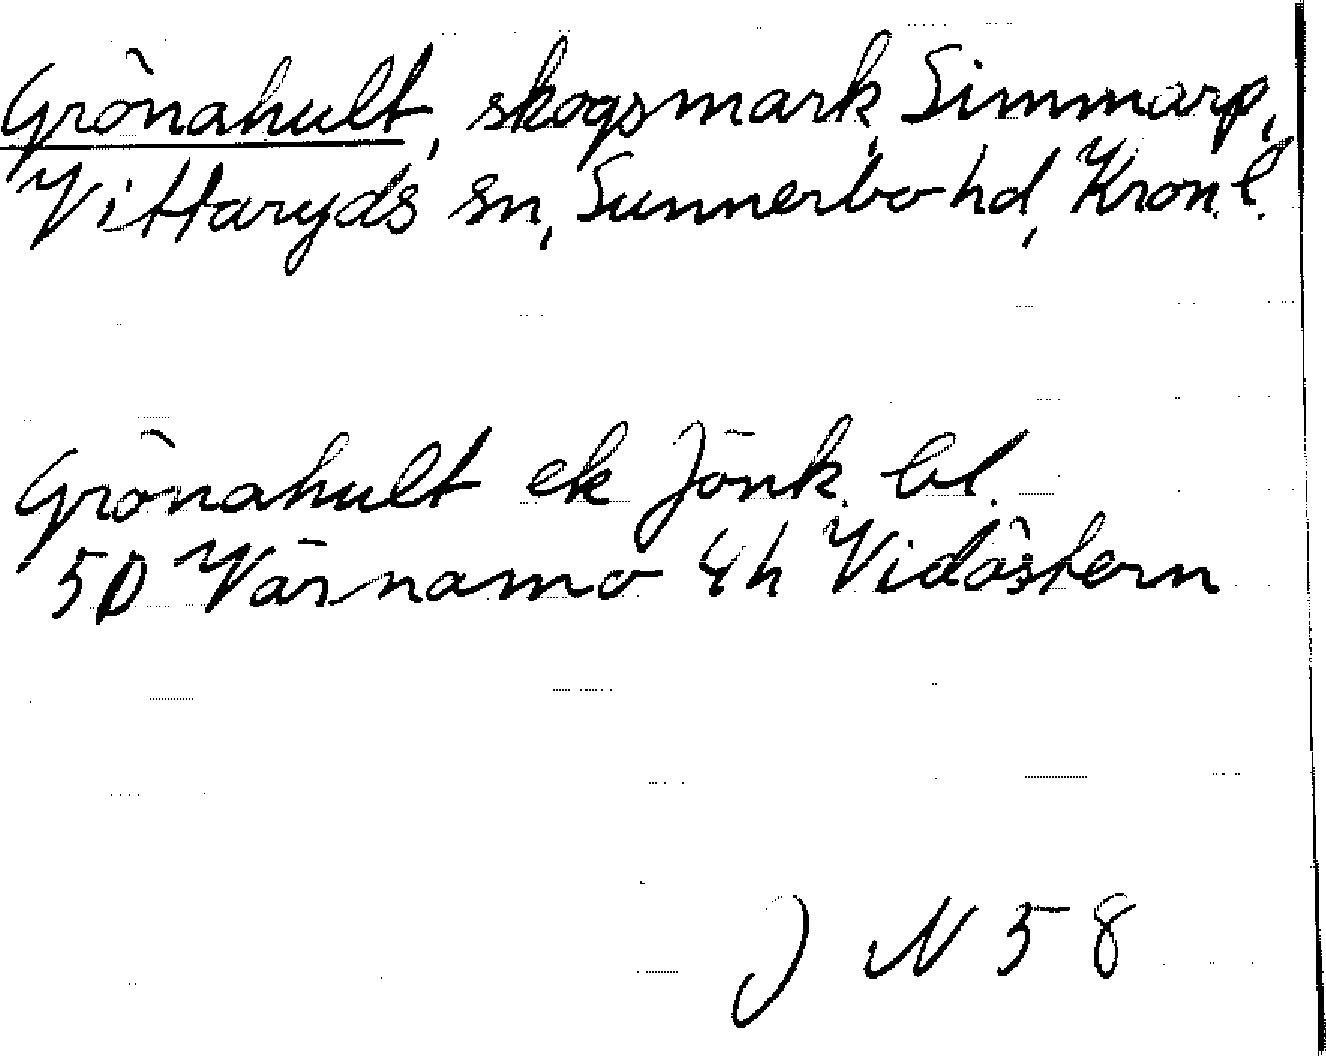 Grönahult, skogsmark, Simmarp,
Vittaryds sn, Sunnerbo hd, Kron.l.
Grönahult ek Jönk. bl.
5D Värnamo 4h Vidöstern
J N 58